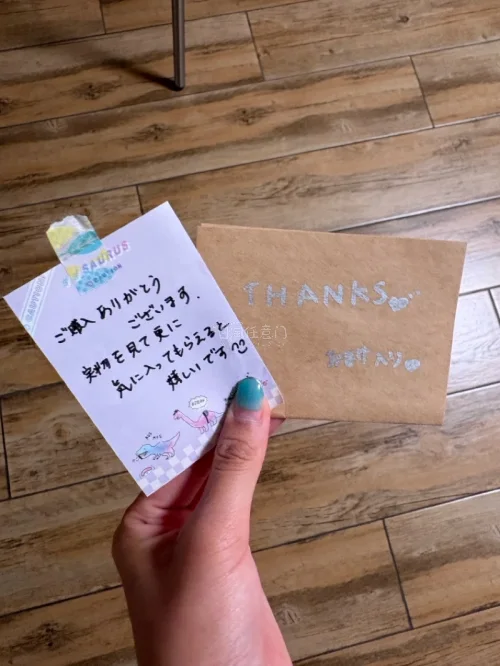 SAURUS
ご購入ありがとう
ございます.
実物を見て更に
気に入ってもらえると
嬉しいです
THANKS
おまけ入り